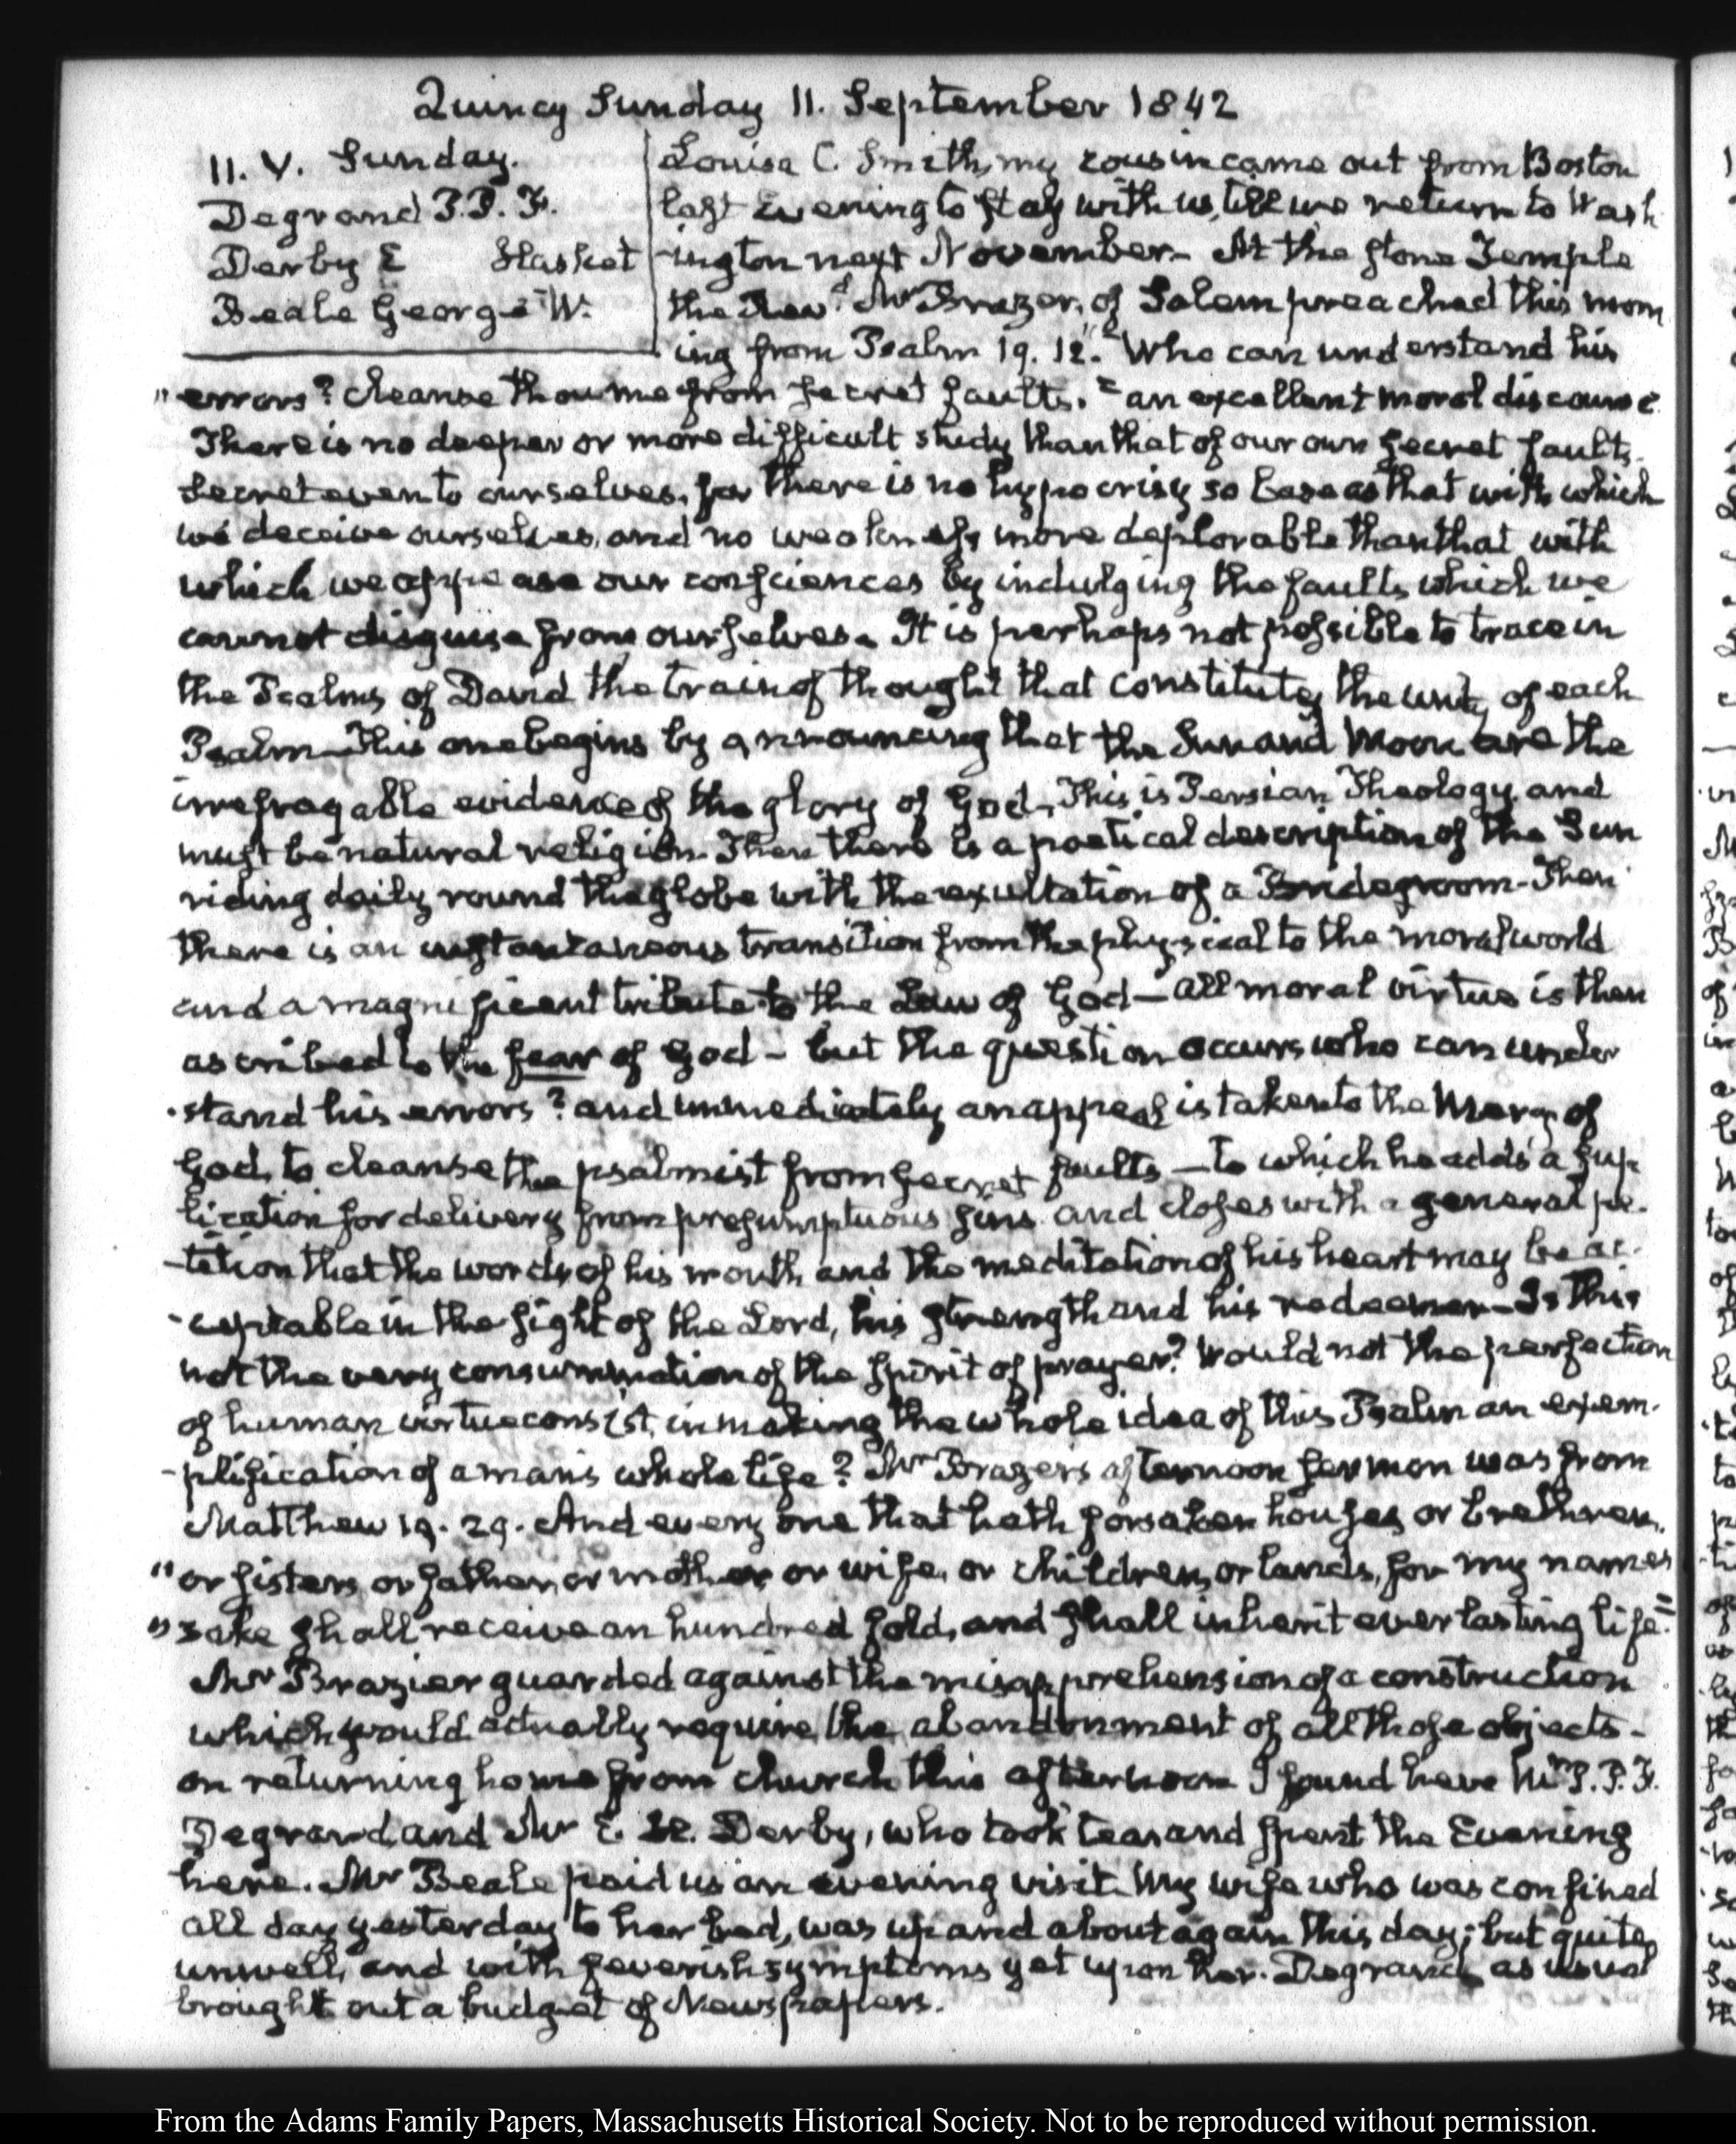 Quincy Sunday 11. September 1842
11. V. Sunday.
Degrand P. P. F.
Derby E Hasket
Beale George W.
Louisa C. Smith, my cousin came out from Boston
last Evening to stay with us, till we return to Wash
-ington next November. At the stone Temple
the Revd. Mr Brazer, of Salem preached this morn
ing from Psalm 19. 12. "Who can understand his
"errors? cleanse thou me from secret faults." an excellent moral discourse
There is no deeper or more difficult study than that of our own secret faults.
Secret even to ourselves, for there is no hypocrisy so base as that with which
we deceive ourselves, and no weakness more deplorable than that with
which we appease our consciences by indulging the faults which we
cannot disguise from ourselves. It is perhaps not possible to trace in
the Psalms of David the train of thought that constitutes the unity of each
Psalm—This one begins by announcing that the Sun and Moon are the
irrefragable evidence of the glory of God. This is Persian Theology, and
must be natural religion. Then there is a poetical description of the Sun
riding daily round the globe with the exultation of a Bridegroom—Then
there is an instantaneous transition from the physical to the moral world
and a magnificent tribute to the Law of God—all moral virtue is then
ascribed to the fear of God—but the question occurs who can under
-stand his errors? and immediately an appeal is taken to the Mercy of
God, to cleanse the psalmist from secret faults—to which he adds a sup-
lication for delivery from presumptuous sins and closes with a general pe-
-tition that the words of his mouth and the meditation of his heart may be ac-
-ceptable in the sight of the Lord, his strength and his redeemer—Is this
not the very consummation of the spirit of prayer? Would not the perfection
of human virtue consist, in making the whole idea of this Psalm an exem-
-plification of a man's whole life? Mr Brazer's afternoon sermon was from
Matthew 19. 29. And every one that hath forsaken houses or brethren,
"or sisters, or father, or mother or wife, or children, or lands, for my names
"sake shall receive an hundred fold, and shall inherit everlasting life."
Mr Brazier guarded against the misapprehension of a construction
which would actually require the abandonment of all those objects—
on returning home from church this afternoon I found here Mr P. P. F.
Degrand and Mr E. H. Derby, who took tea and spent the Evening
here. Mr Beale paid us an evening visit. My wife who was confined
all day yesterday to her bed, was up and about again this day; but quite
unwell, and with feverish symptoms yet upon her. Degrand, as usual
brought out a budget of Newspapers.
From the Adams Family Papers, Massachusetts Historical Society. Not to be reproduced without permission.